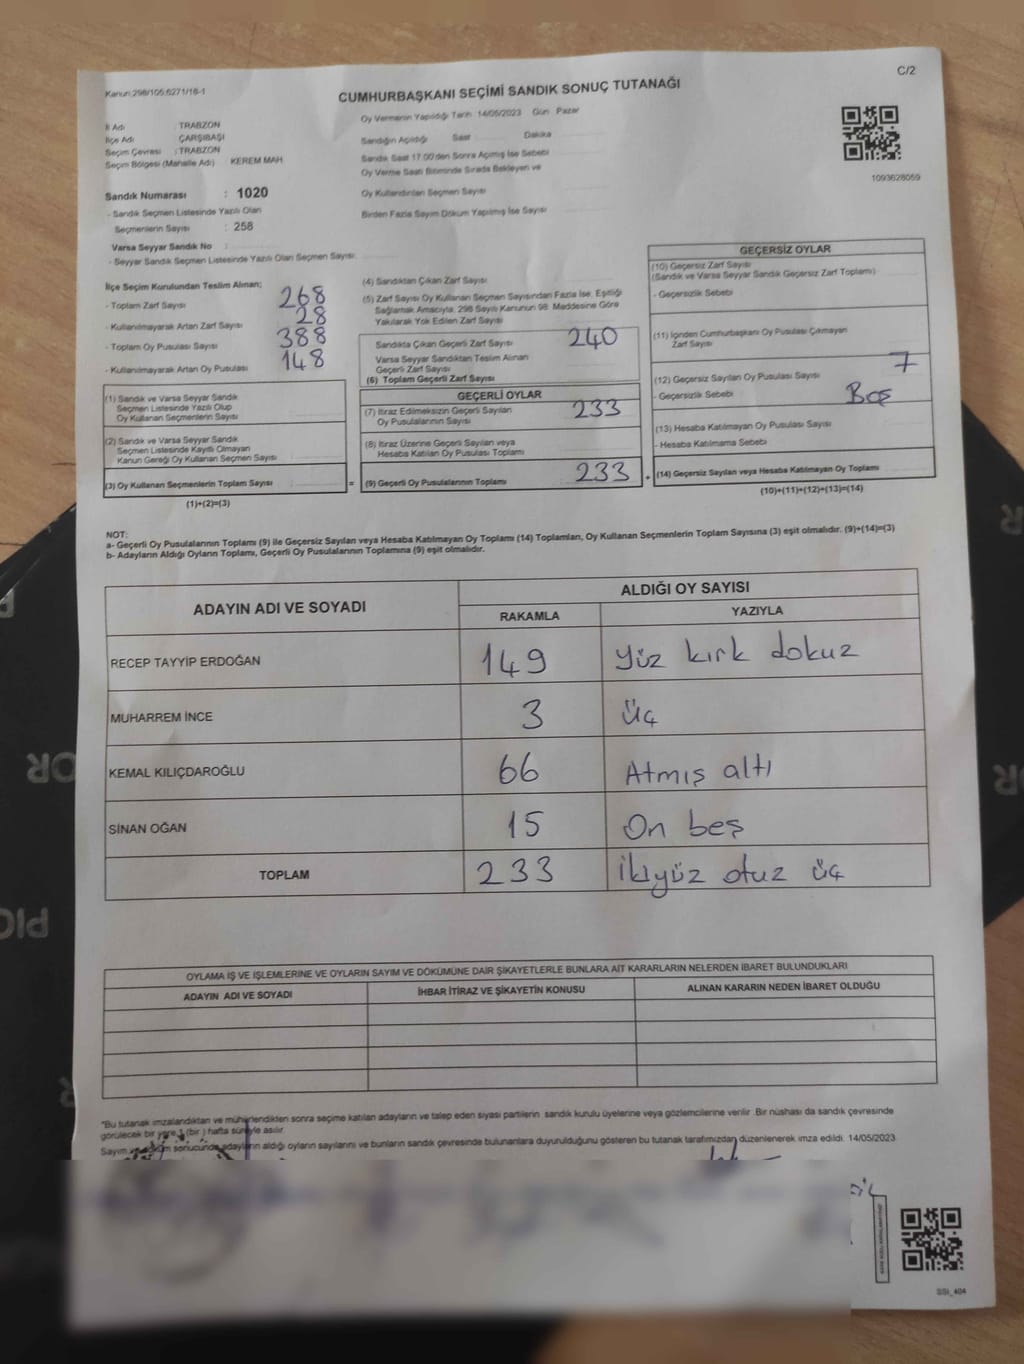 C/2
Kanun:298/105;6271/18-1
CUMHURBAŞKANI SEÇİMİ SANDIK SONUÇ TUTANAĞI
İl Adı : TRABZON
İlçe Adı : ÇARŞIBAŞI
Seçim Çevresi : TRABZON
Seçim Bölgesi (Mahalle Adı) : KEREM MAH
Sandık Numarası : 1020
- Sandık Seçmen Listesinde Yazılı Olan
Seçmenlerin Sayısı : 258
Varsa Seyyar Sandık No :
- Seyyar Sandık Seçmen Listesinde Yazılı Olan Seçmen Sayısı:
Oy Vermenin Yapıldığı Tarih 14/05/2023 Gün Pazar
Sandığın Açıldığı Saat Dakika
Sandık Saat 17.00'den Sonra Açılmış İse Sebebi
Oy Verme Saati Bitiminde Sırada Bekleyen ve
Oy Kullandırılan Seçmen Sayısı
Birden Fazla Sayım Döküm Yapılmış İse Sayısı
1093628059
İlçe Seçim Kurulundan Teslim Alınan;
- Toplam Zarf Sayısı 268
- Kullanılmayarak Artan Zarf Sayısı 28
- Toplam Oy Pusulası Sayısı 388
- Kullanılmayarak Artan Oy Pusulası 148
(1) Sandık ve Varsa Seyyar Sandık
Seçmen Listesinde Yazılı Olup
Oy Kullanan Seçmenlerin Sayısı
(2) Sandık ve Varsa Seyyar Sandık
Seçmen Listesinde Kayıtlı Olmayan
Kanun Gereği Oy Kullanan Seçmen Sayısı
(3) Oy Kullanan Seçmenlerin Toplam Sayısı =
(1)+(2)=(3)
(4) Sandıktan Çıkan Zarf Sayısı
(5) Zarf Sayısı Oy Kullanan Seçmen Sayısından Fazla İse, Eşitliği
Sağlamak Amacıyla, 298 Sayılı Kanunun 98. Maddesine Göre
Yakılarak Yok Edilen Zarf Sayısı
Sandıkta Çıkan Geçerli Zarf Sayısı 240
Varsa Seyyar Sandıktan Teslim Alınan
Geçerli Zarf Sayısı
(6) Toplam Geçerli Zarf Sayısı
GEÇERLİ OYLAR
(7) İtiraz Edilmeksizin Geçerli Sayılan
Oy Pusulalarının Sayısı 233
(8) İtiraz Üzerine Geçerli Sayılan veya
Hesaba Katılan Oy Pusulası Toplamı
(9) Geçerli Oy Pusulalarının Toplamı 233 +
GEÇERSİZ OYLAR
(10) Geçersiz Zarf Sayısı
(Sandık ve Varsa Seyyar Sandık Geçersiz Zarf Toplamı)
- Geçersizlik Sebebi
(11) İçinden Cumhurbaşkanı Oy Pusulası Çıkmayan
Zarf Sayısı
(12) Geçersiz Sayılan Oy Pusulası Sayısı 7
- Geçersizlik Sebebi Boş
(13) Hesaba Katılmayan Oy Pusulası Sayısı
- Hesaba Katılmama Sebebi
(14) Geçersiz Sayılan veya Hesaba Katılmayan Oy Toplamı
(10)+(11)+(12)+(13)=(14)
NOT:
a- Geçerli Oy Pusulalarının Toplamı (9) ile Geçersiz Sayılan veya Hesaba Katılmayan Oy Toplamı (14) Toplamları, Oy Kullanan Seçmenlerin Toplam Sayısına (3) eşit olmalıdır. (9)+(14)=(3)
b- Adayların Aldığı Oyların Toplamı, Geçerli Oy Pusulalarının Toplamına (9) eşit olmalıdır.
ADAYIN ADI VE SOYADI ALDIĞI OY SAYISI
RAKAMLA YAZIYLA
RECEP TAYYİP ERDOĞAN 149 Yüz kırk dokuz
MUHARREM İNCE 3 Üç
KEMAL KILIÇDAROĞLU 66 Atmış altı
SİNAN OĞAN 15 On beş
TOPLAM 233 İkiyüz otuz üç
OYLAMA İŞ VE İŞLEMLERİNE VE OYLARIN SAYIM VE DÖKÜMÜNE DAİR ŞİKAYETLERLE BUNLARA AİT KARARLARIN NELERDEN İBARET BULUNDUKLARI
ADAYIN ADI VE SOYADI İHBAR İTİRAZ VE ŞİKAYETİN KONUSU ALINAN KARARIN NEDEN İBARET OLDUĞU
"Bu tutanak imzalandıktan ve mühürlendikten sonra seçime katılan adayların ve talep eden siyasi partilerin sandık kurulu üyelerine veya gözlemcilerine verilir. Bir nüshası da sandık çevresinde
görülecek bir yere 1 (bir) hafta süreyle asılır.
Sayım ve döküm sonucunda adayların aldığı oyların sayılarını ve bunların sandık çevresinde bulunanlara duyurulduğunu gösteren bu tutanak tarafımızdan düzenlenerek imza edildi. 14/05/2023
SSI_404